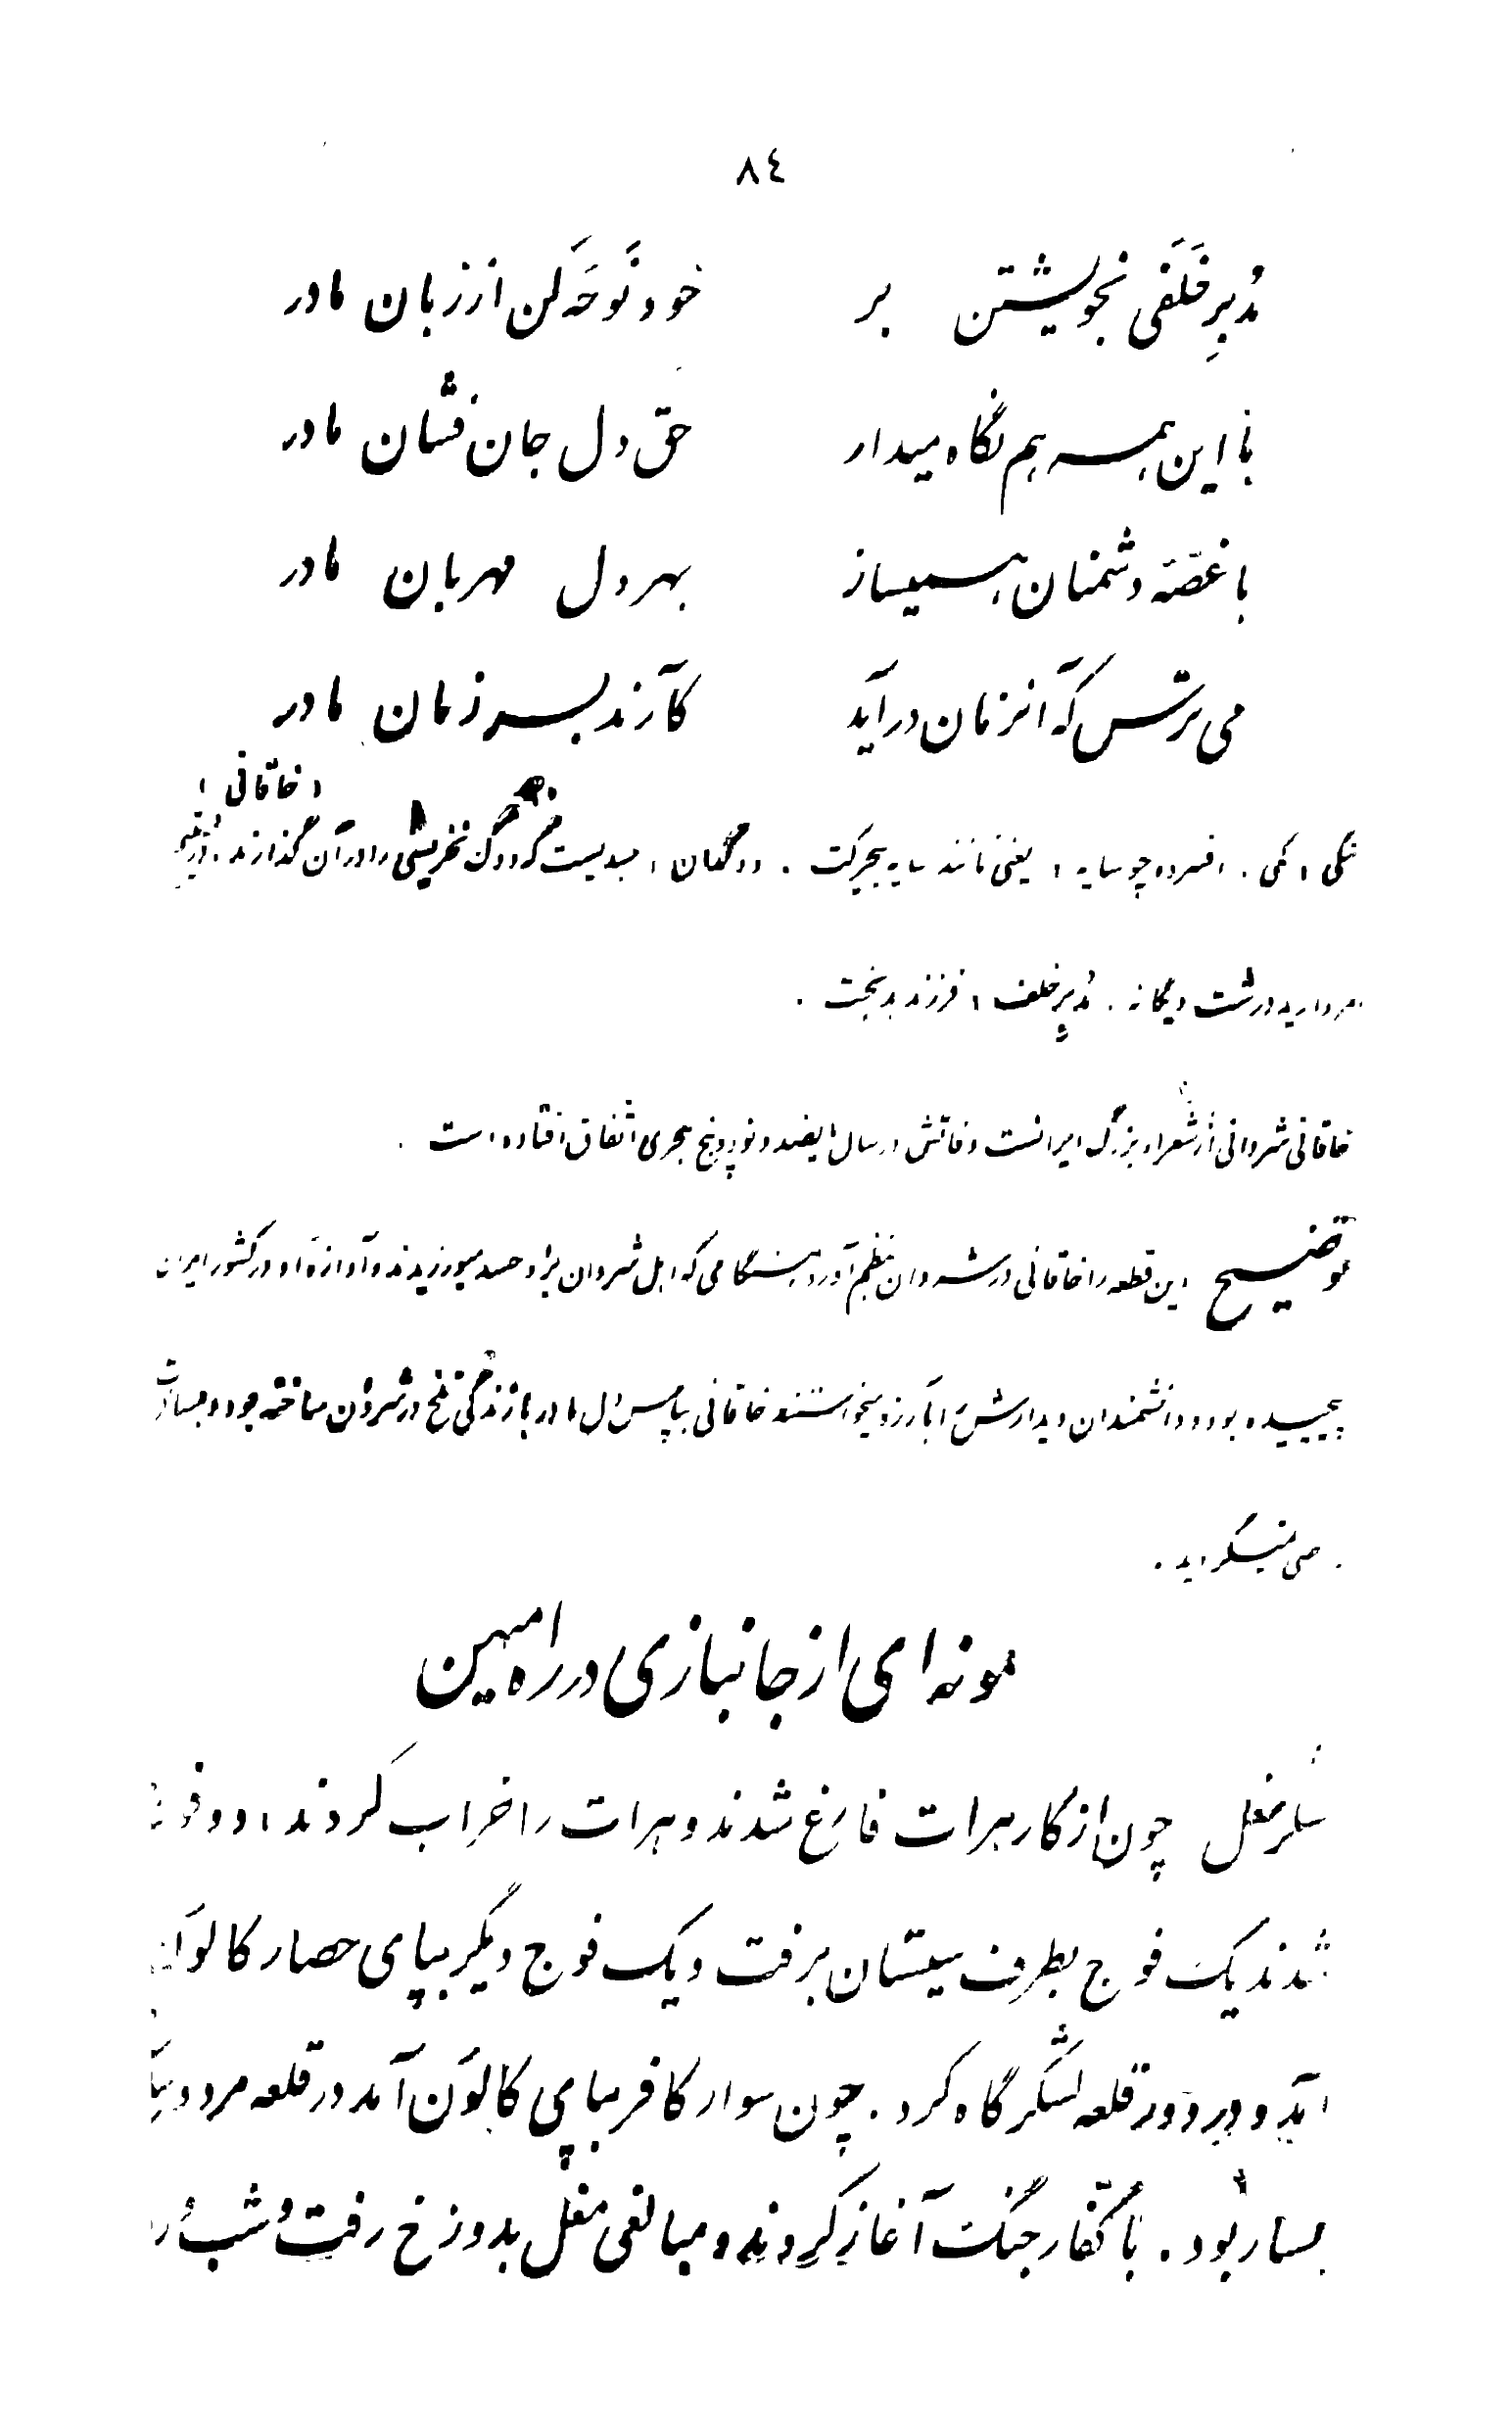 ٨٤
مُدبِرِ خَلَفی بخویشتن بر خود نَوحَه کن از زبان مادر
با این همه هم نگاه میدار حق دل جان فشان مادر
با غصّه دشمنان همیساز بهر دل مهربان مادر
می ترس که آنزمان درآید کآرند بسر زمان مادر
(خاقانی)
تنگی ، کمی . افسرده چو سایه ، یعنی مانند سایه بیحرکت . دوکدان ، سبدیست که دوک نخریسی را در آن گذارند . دُرِّ یتیم
مروارید درشت و یگانه . مُدبِرِ خلف ، فرزند بدبخت .
خاقانی شروانی از شعراء بزرگ ایرانست وفاتش در سال پانصد و نود و پنج هجری اتفاق افتاده است .
توضیح این قطعه را خاقانی در شروان بنظم آورد هنگامی که اهل شروان بر او حسد میورزیدند و آوازهٔ او در کشور ایران
پیچیده بود و دانشمندان دیدارش را بآرزو میخواستند خاقانی بپاس دل مادر با زندگی تلخ در شروان ساخته بود و
نمونه ای از جانبازی در راه میهن
لشکر مغل چون از کار هرات فارغ شدند و هرات را خراب کردند ، دو فوج
شدند یک فوج بطرف سیستان برفت و یک فوج دیگر بپای حصار کالوَن
آمد و در دور قلعه لشکرگاه کرد . چون سوار کافر بپای کالوَن آمد در قلعه مرد
بسیار بود . با کفّار جنگ آغاز کردند و مبالغی مغل بدوزخ رفت و شب و